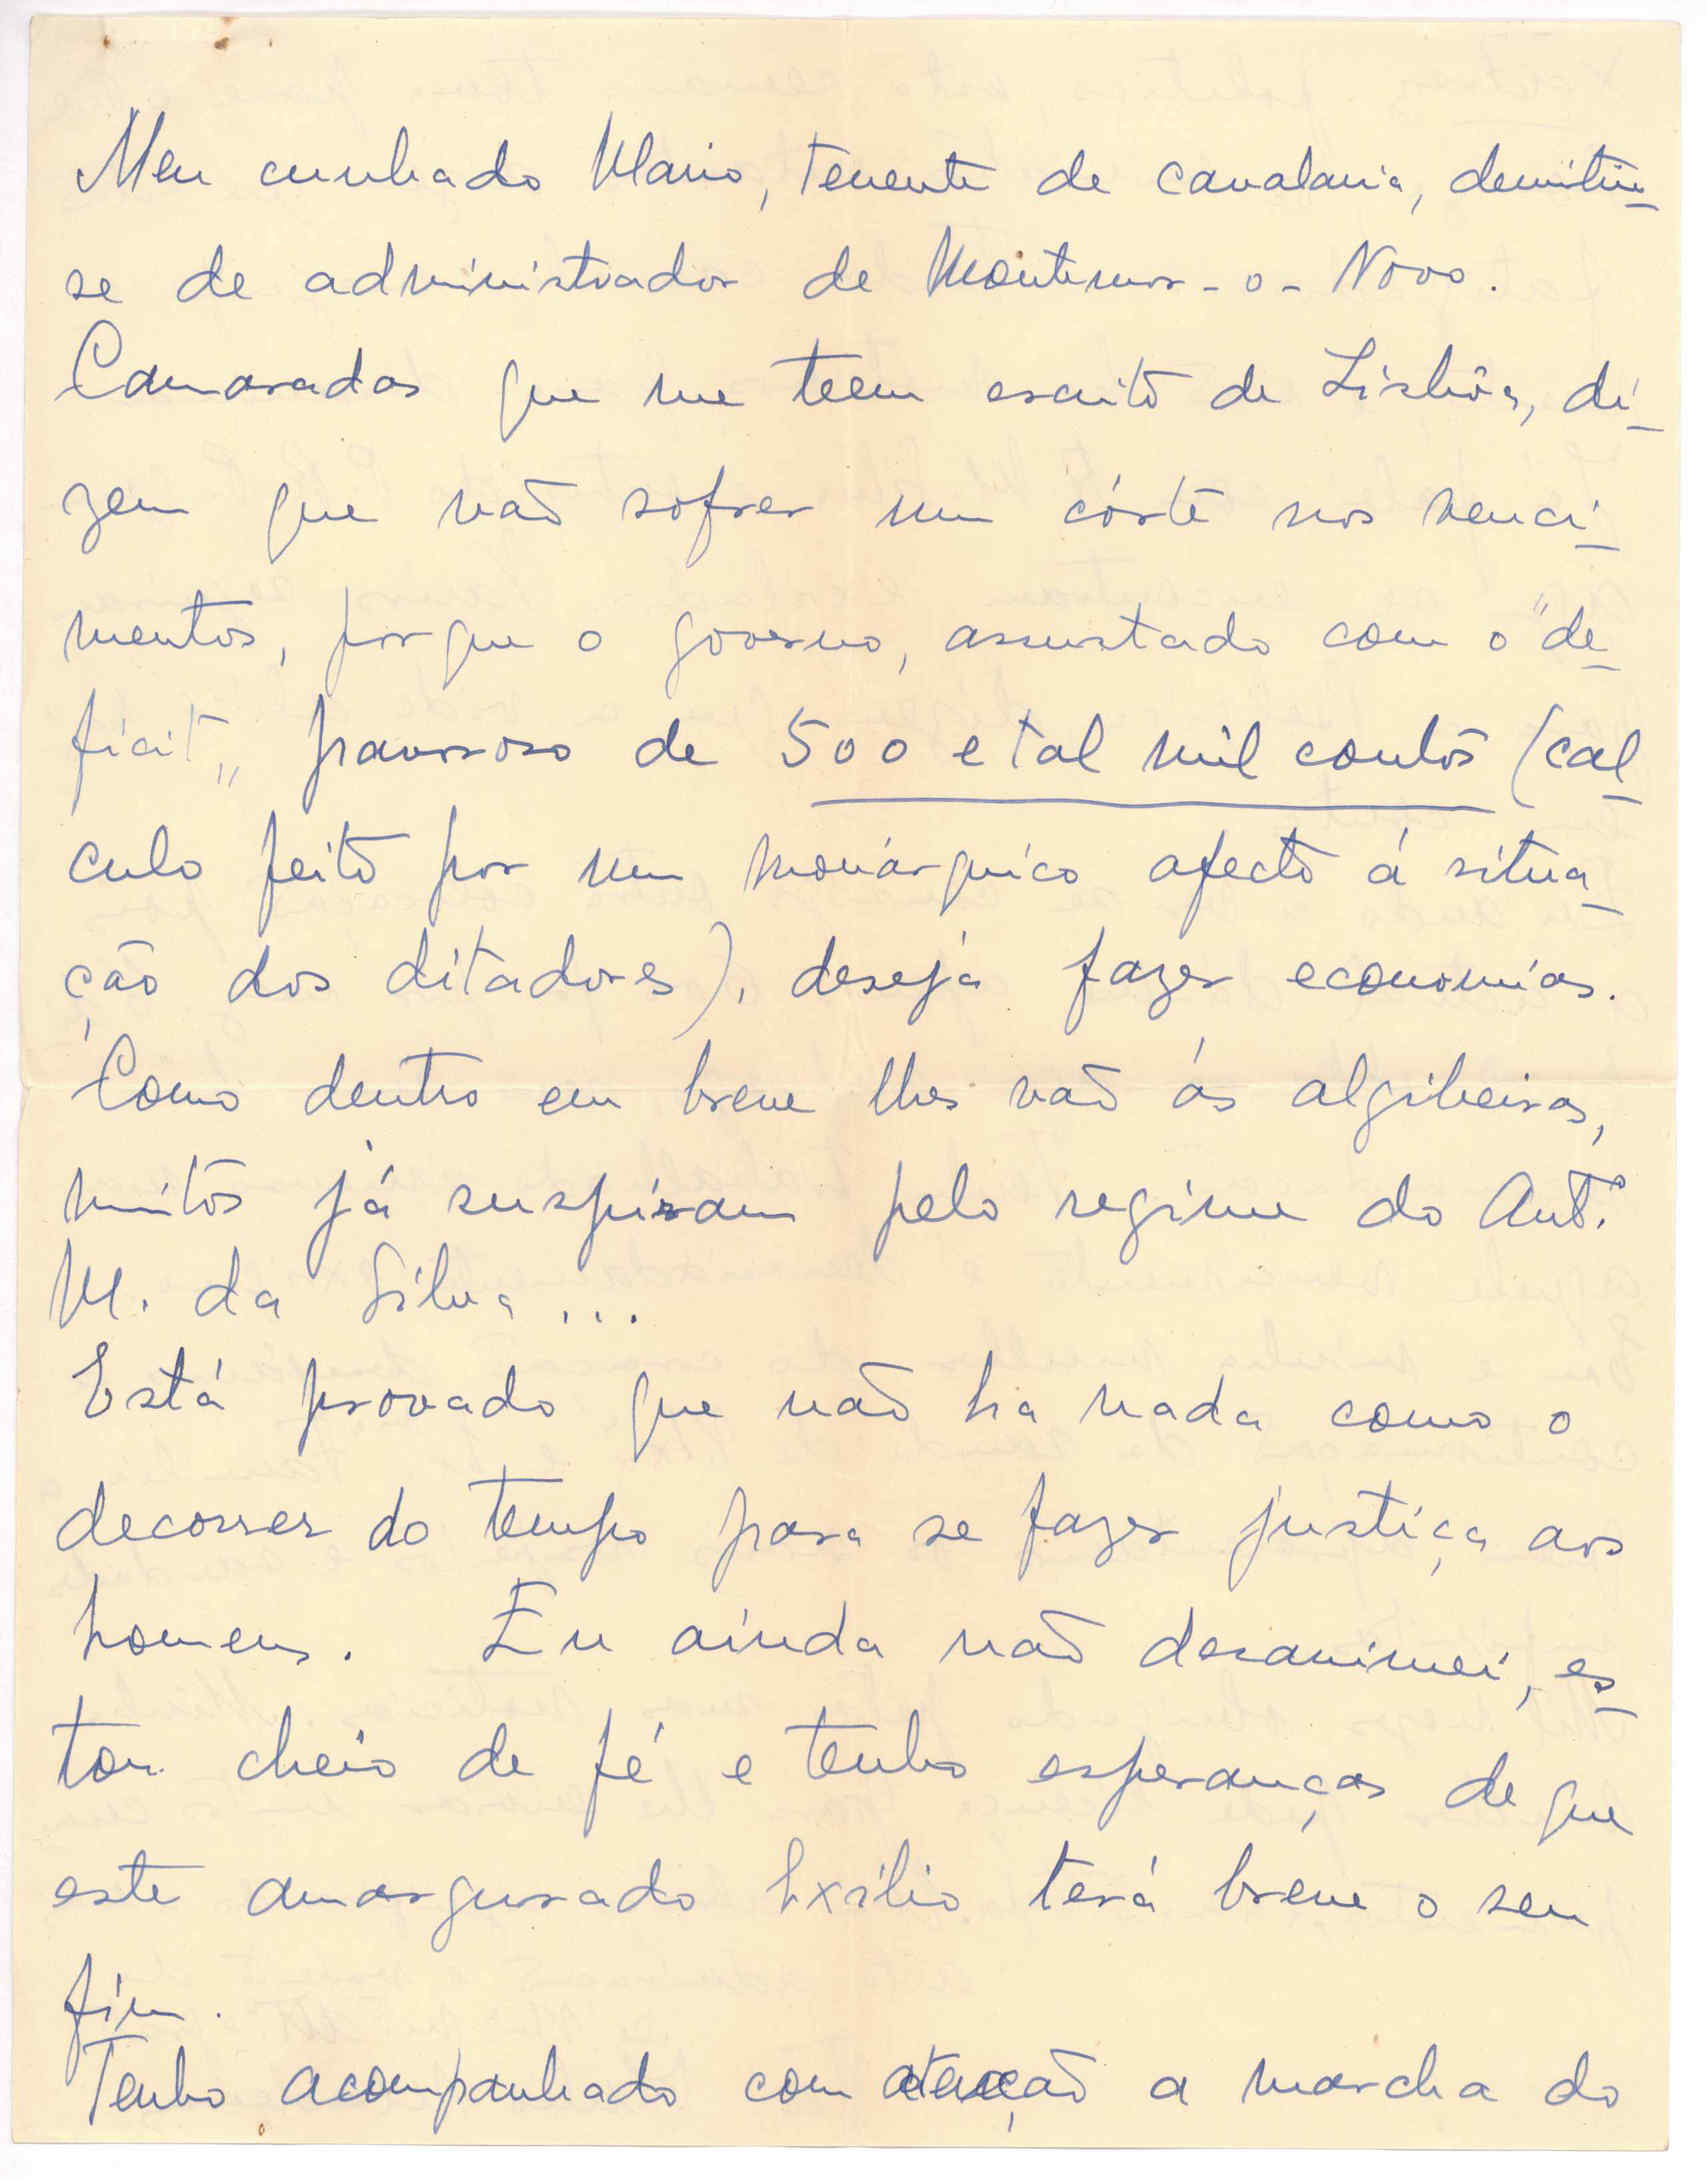 Meu cunhado Mario, tenente de cavalaria, demitiu-
se de administrador de Montemor-o-Novo.
Camaradas que me teem escrito de Lisbôa, di-
zem que vão sofrer um córte nos venci-
mentos, porque o governo, assustado com o "de-
ficit" pavoroso de 500 e tal mil contos (cal-
culo feito por um monárquico afecto á situa-
ção dos ditadores), deseja fazer economias.
Como dentro em breve lhes vão ás algibeiras,
muitos já suspiram pelo regime do Antº.
M. da Silva ...
Está provado que não ha nada como o
decorrer do tempo para se fazer justiça aos
homens. Eu ainda não desanimei, es-
tou cheio de fé e tenho esperanças de que
este amargurado Exílio terá breve o seu
fim.
Tenho acompanhado com atenção a marcha do